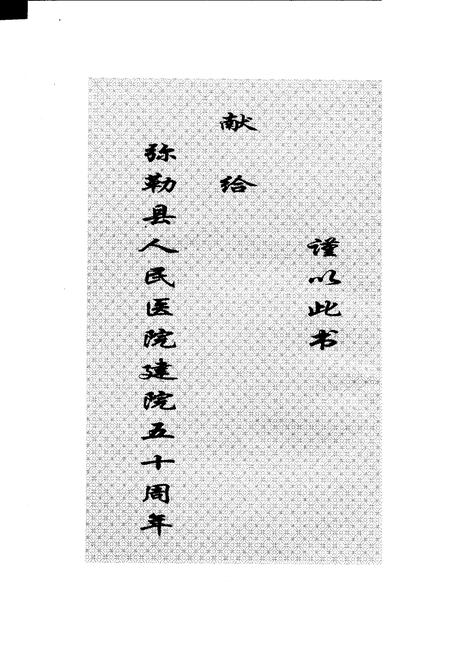 谨以此书
献给
弥勒县人民医院建院五十周年